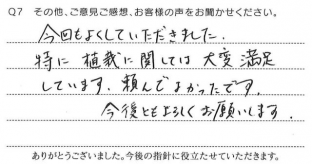 Q7 その他、ご意見ご感想、お客様の声をお聞かせください。
今回もよくしていただきました.
特に 植栽に関しては 大変満足
しています. 頼んでよかったです.
今後ともよろしくお願いします.
ありがとうございました。今後の指針に役立たせていただきます。